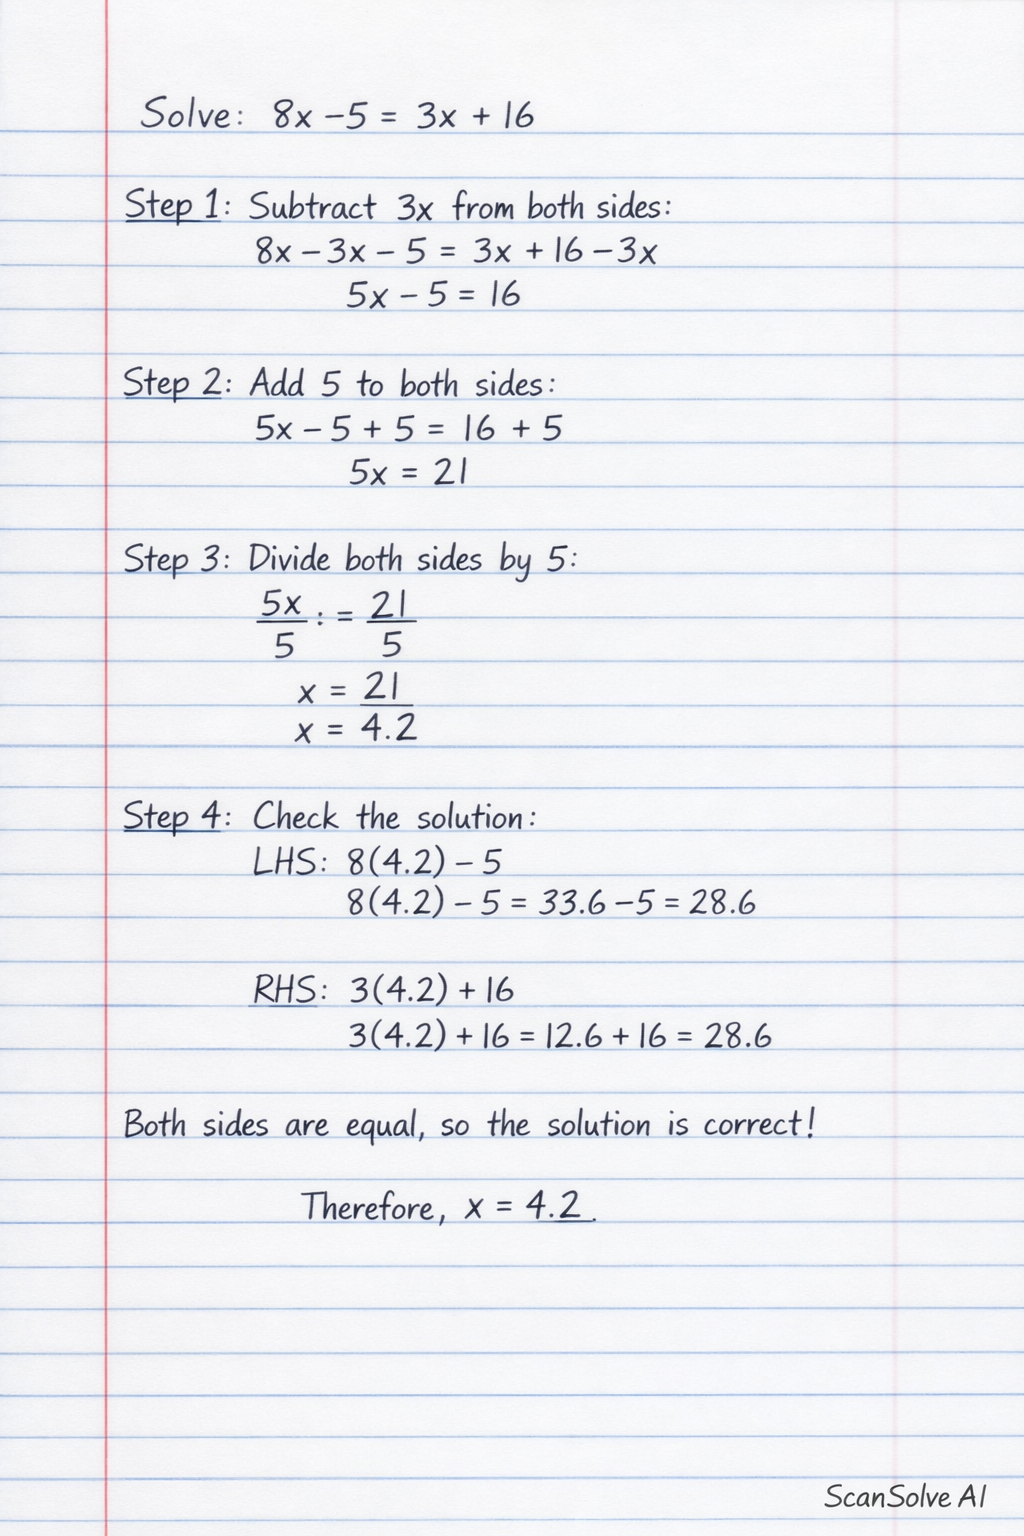 Solve: 8x – 5 = 3x + 16
Step 1: Subtract 3x from both sides:
8x – 3x – 5 = 3x + 16 – 3x
5x – 5 = 16
Step 2: Add 5 to both sides:
5x – 5 + 5 = 16 + 5
5x = 21
Step 3: Divide both sides by 5:
5x/5 : = 21/5
x = 21
x = 4.2
Step 4: Check the solution:
LHS: 8(4.2) – 5
8(4.2) – 5 = 33.6 – 5 = 28.6
RHS: 3(4.2) + 16
3(4.2) + 16 = 12.6 + 16 = 28.6
Both sides are equal, so the solution is correct!
Therefore, x = 4.2.
ScanSolve AI